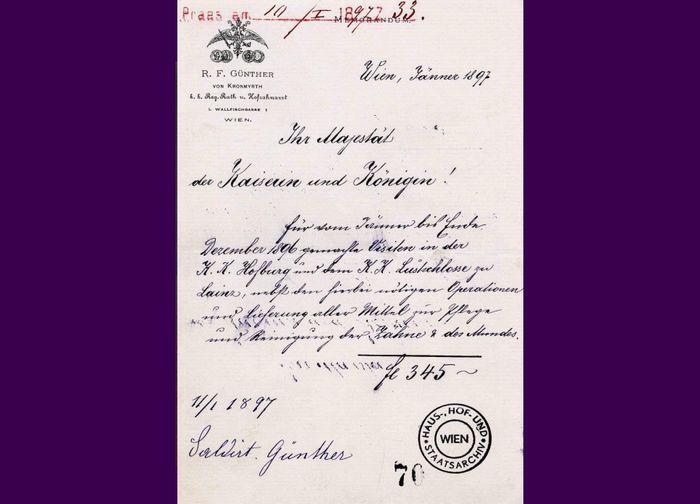 Praes am 10/I 1897 33.
MEMORANDUM.
R. F. GÜNTHER
VON KRONMYRTH
k. k. Reg. Rath u. Hofzahnarzt
I. WALLFISCHGASSE 1
WIEN.
Wien, Jänner 1897
Ihr Majestät
der Kaiserin und Königin!
für vom Jänner bis Ende
Dezember 1896 gemachte Visiten in der
K. K. Hofburg und dem K. K. Lustschlosse zu
Lainz, nebst den hierbei nötigen Operationen
und Lieferung aller Mittel zur Pflege
und Reinigung der Zähne & des Mundes.
fl 345 ~
11/I 1897
Saldirt. Günther
70
HAUS-, HOF- UND STAATSARCHIV
WIEN